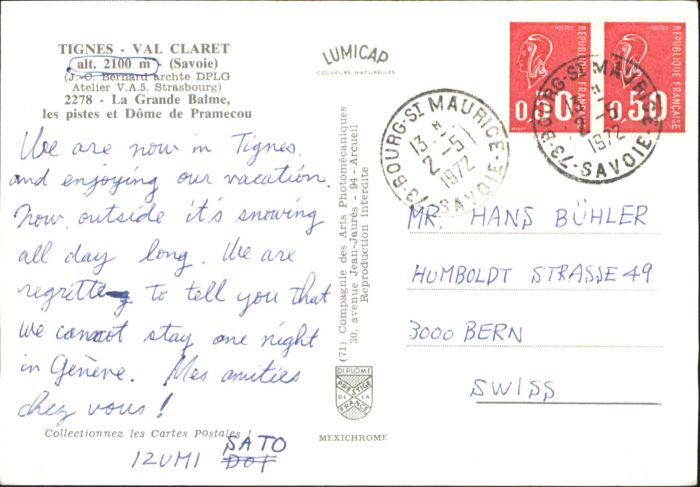 TIGNES - VAL CLARET
alt. 2100 m (Savoie)
(J.-C. Bernard archte DPLG
Atelier V.A.5. Strasbourg)
2278 - La Grande Balme,
les pistes et Dôme de Pramecou
We are now in Tignes,
and enjoying our vacation.
Now, outside it's snowing
all day long. We are
regretting to tell you that
we cannot stay one night
in Génève. Mes amitiés
chez vous!
Collectionnez les Cartes Postales !
IZUMI SATO
LUMICAP
COULEURS NATURELLES
(71) Compagnie des Arts Photomécaniques
30, avenue Jean-Jaurès - 94 - Arcueil
Reproduction Interdite
DIPLOME
PRESTIGE
DE LA
FRANCE
MEXICHROME
POSTES
REPUBLIQUE FRANÇAISE
0,50
POSTES
REPUBLIQUE FRANÇAISE
0,50
73-BOURG-ST MAURICE
13H
2-5
1972
SAVOIE
73-BOURG-ST MAURICE
2-5
1972
SAVOIE
MR. HANS BÜHLER
HUMBOLDT STRASSE 49
3000 BERN
SWISS